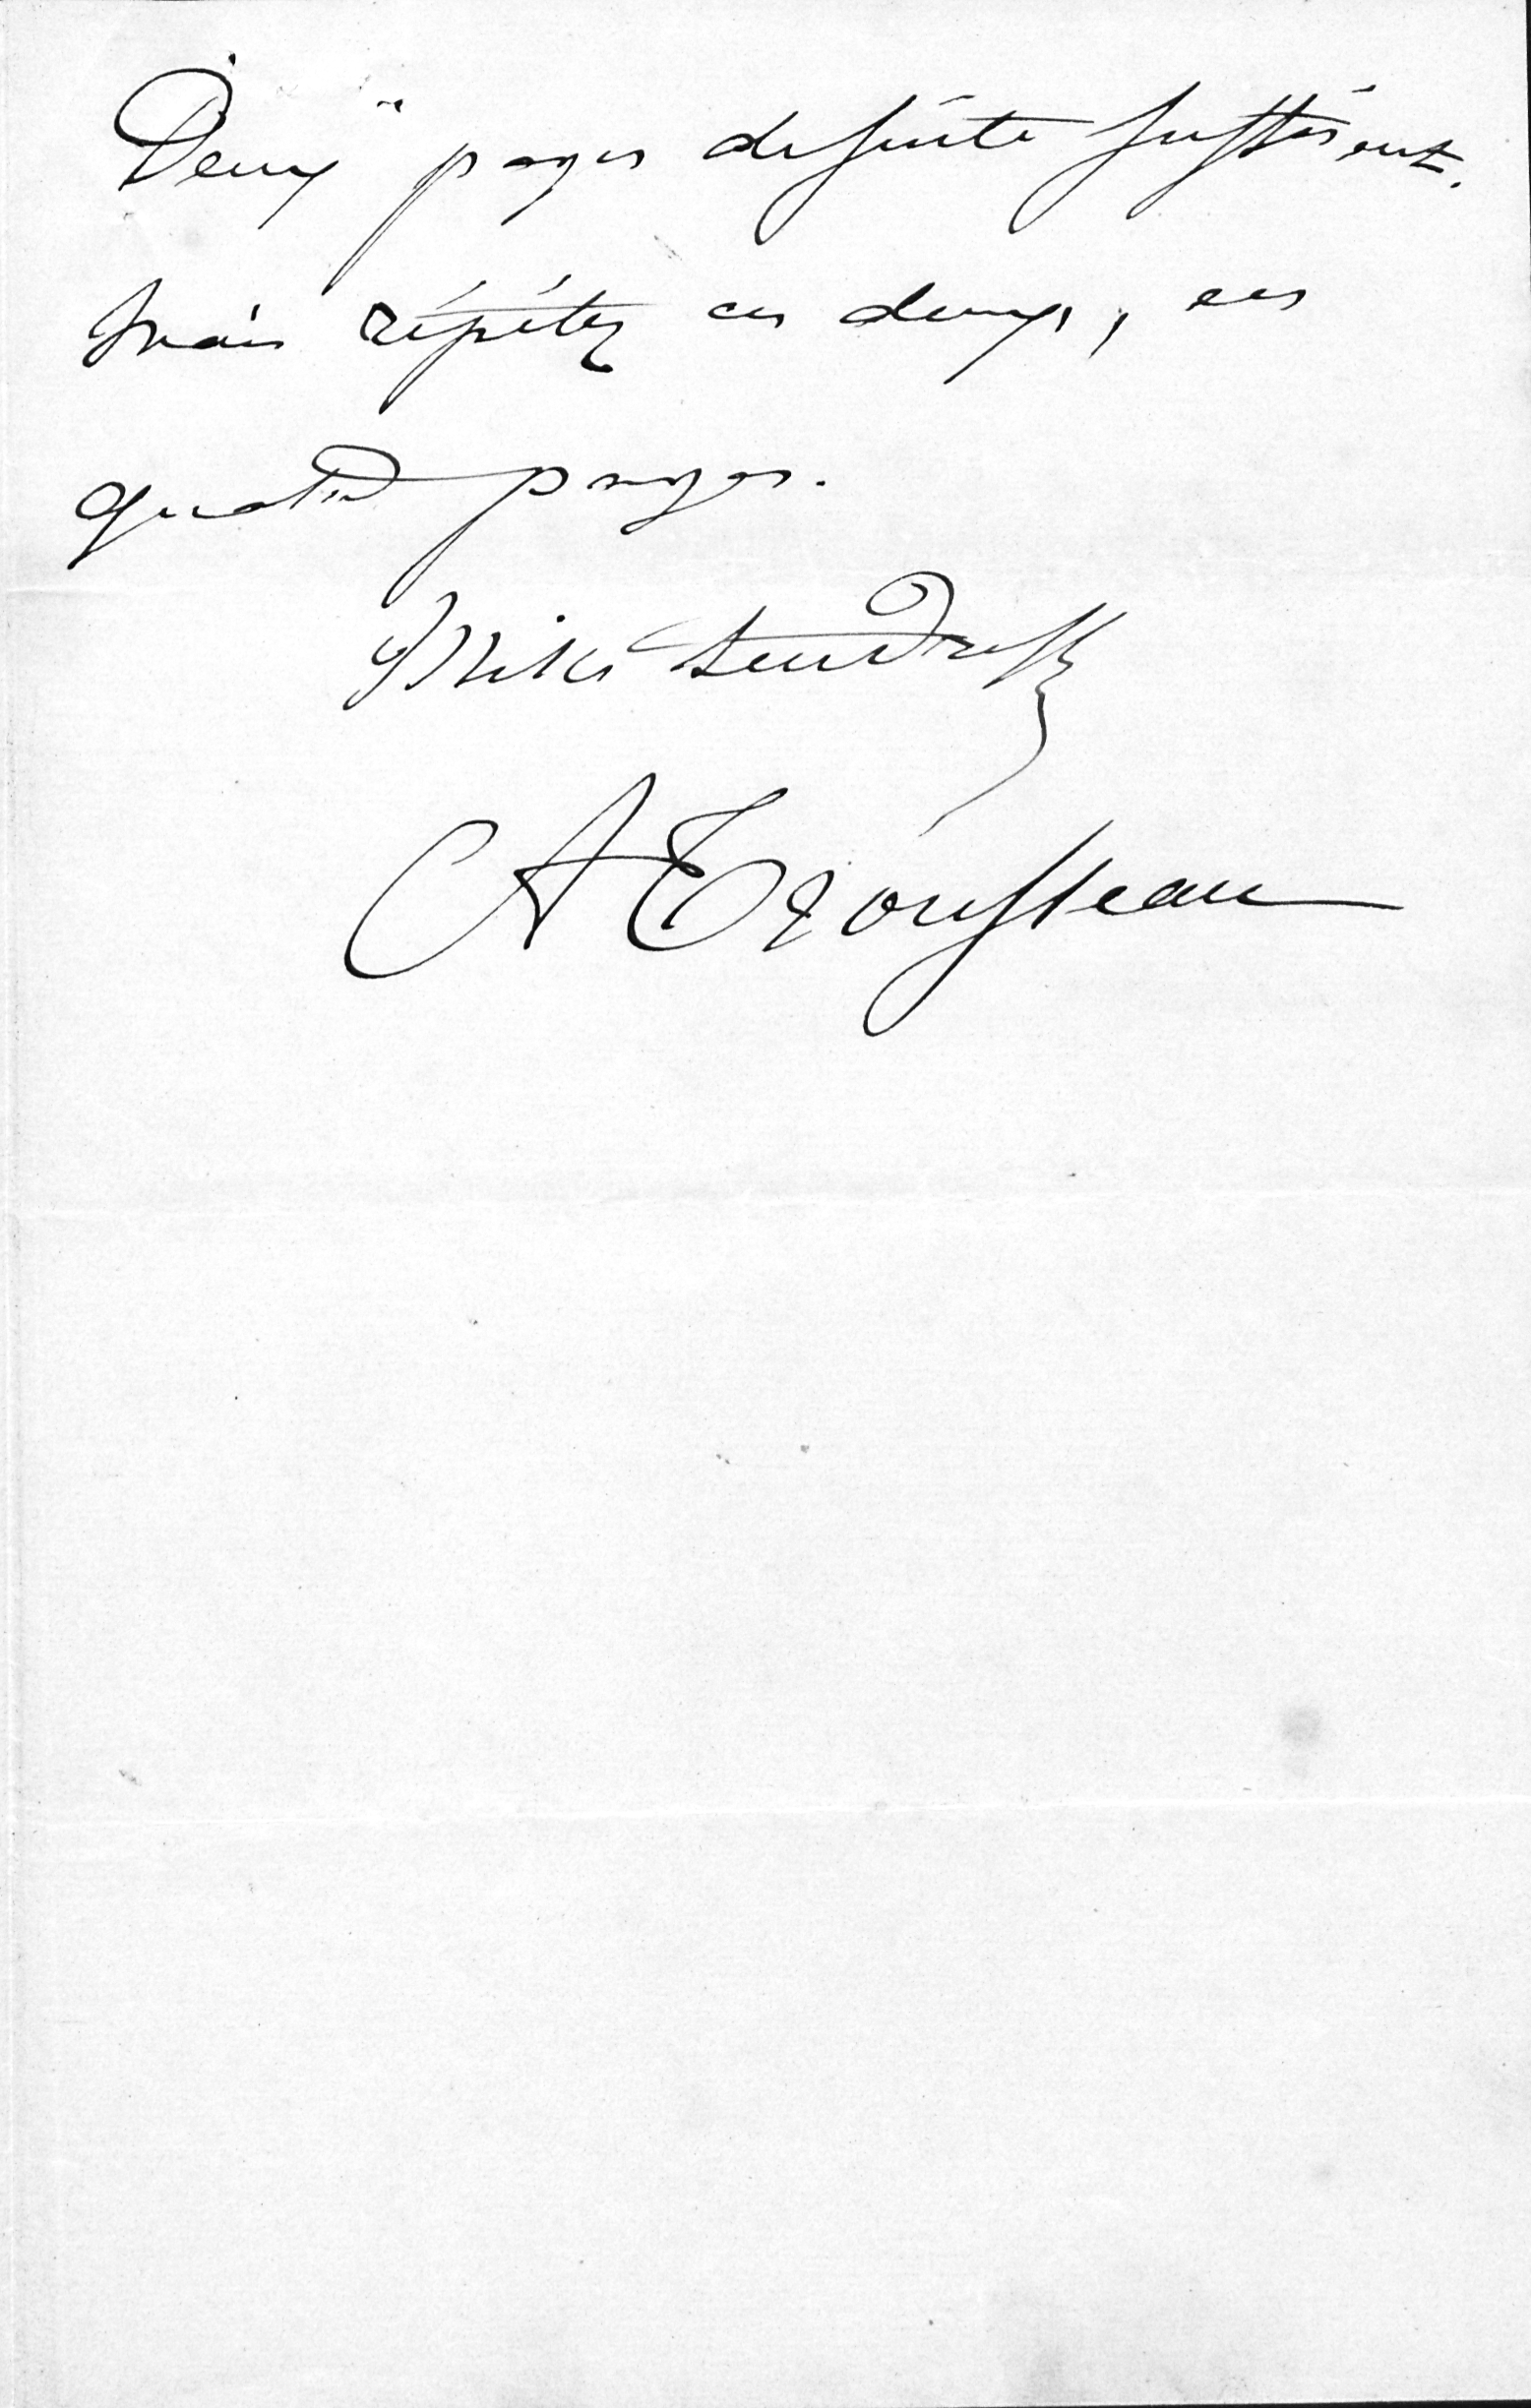 Deux pages de suite suffiront.
Mais répétez ces deux, ces
quatre pages.
Mille tendresses
A Trousseau